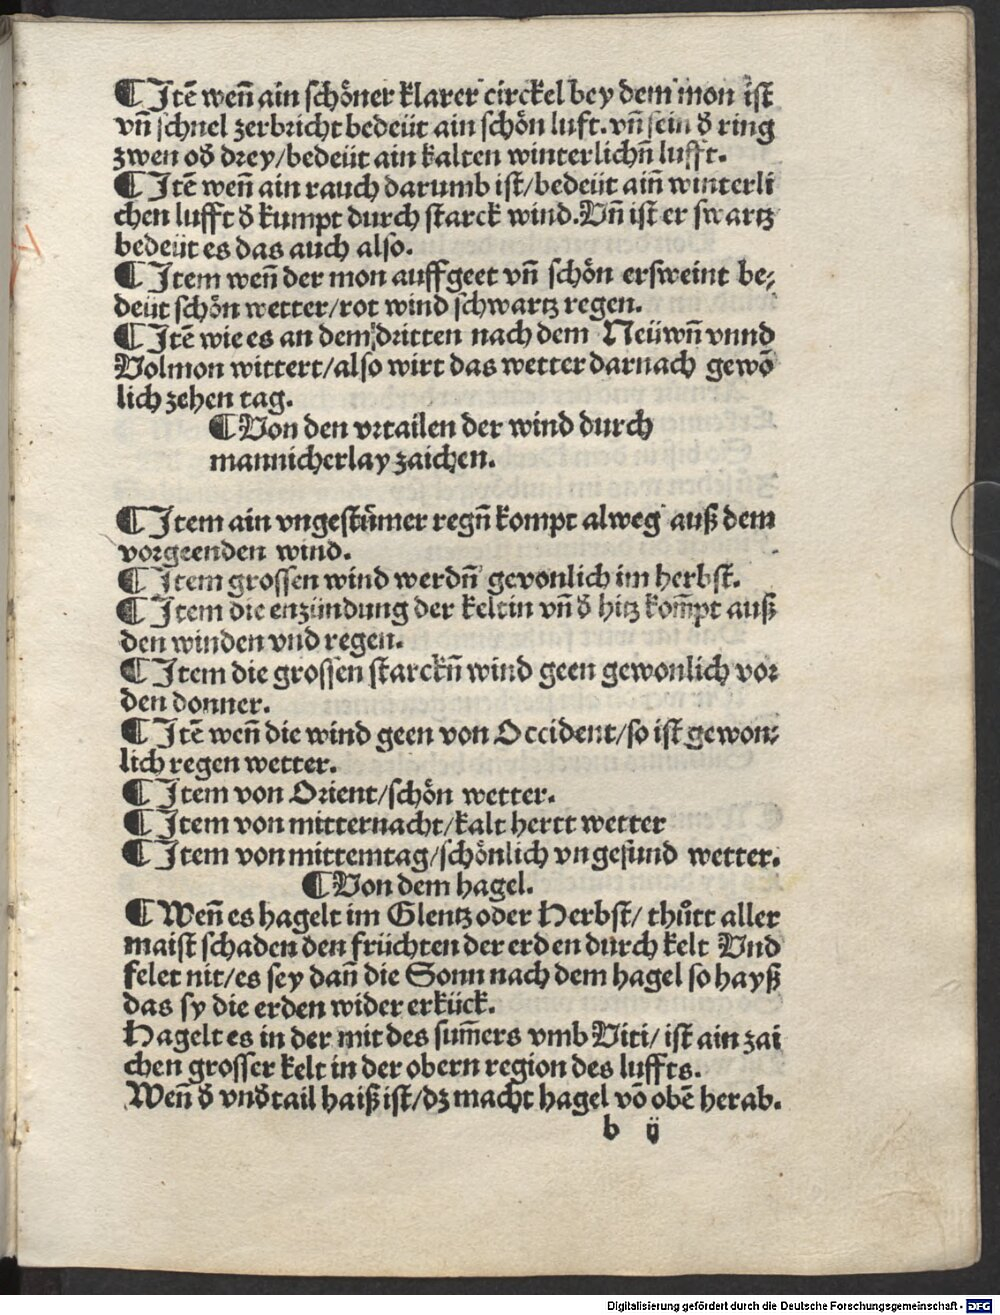 ¶ Itē weñ ain schöner klarer circkel bey dem mon ist
vñ schnel zerbricht bedeüt ain schön luft. vñ sein ð ring
zwen oð drey/bedeüt ain kalten winterlichñ lufft.
¶ Itē weñ ain rauch darumb ist/bedeüt aiñ winterli
chen lufft ð kumpt durch starck wind. Vñ ist er swartz
bedeüt es das auch also.
¶ Item weñ der mon auffgeet vñ schön ersweint be⸗
deüt schön wetter/rot wind schwartz regen.
¶ Itē wie es an dem dritten nach dem Neüwñ vnnd
Volmon wittert/also wirt das wetter darnach gewō
lich zehen tag.
¶ Von den vrtailen der wind durch
mannicherlay zaichen.
¶ Item ain vngestümer regñ kompt alweg auß dem
vorgeenden wind.
¶ Item grossen wind werdñ gevonlich im herbst.
¶ Item die enzündung der keltin vñ ð hitz kom̄pt auß
den winden vnd regen.
¶ Item die grossen starckñ wind geen gewonlich vor
den donner.
¶ Itē weñ die wind geen von Occident/so ist gewon⸗
lich regen wetter.
¶ Item von Orient/schön wetter.
¶ Item von mitternacht/kalt hertt wetter
¶ Item von mittemtag/schönlich vngesund wetter.
¶ Von dem hagel.
¶ Weñ es hagelt im Glentz oder Herbst/ thůtt aller
maist schaden den früchten der erden durch kelt Vnd
felet nit/es sey dañ die Sonn nach dem hagel so hayß
das sy die erden wider erkück.
Hagelt es in der mit des sum̄ers vmb Viti/ ist ain zai
chen grosser kelt in der obern region des luffts.
Weñ ð vnðtail haiß ist/dz macht hagel vō obē herab.
b ij
Digitalisierung gefördert durch die Deutsche Forschungsgemeinschaft - DFG